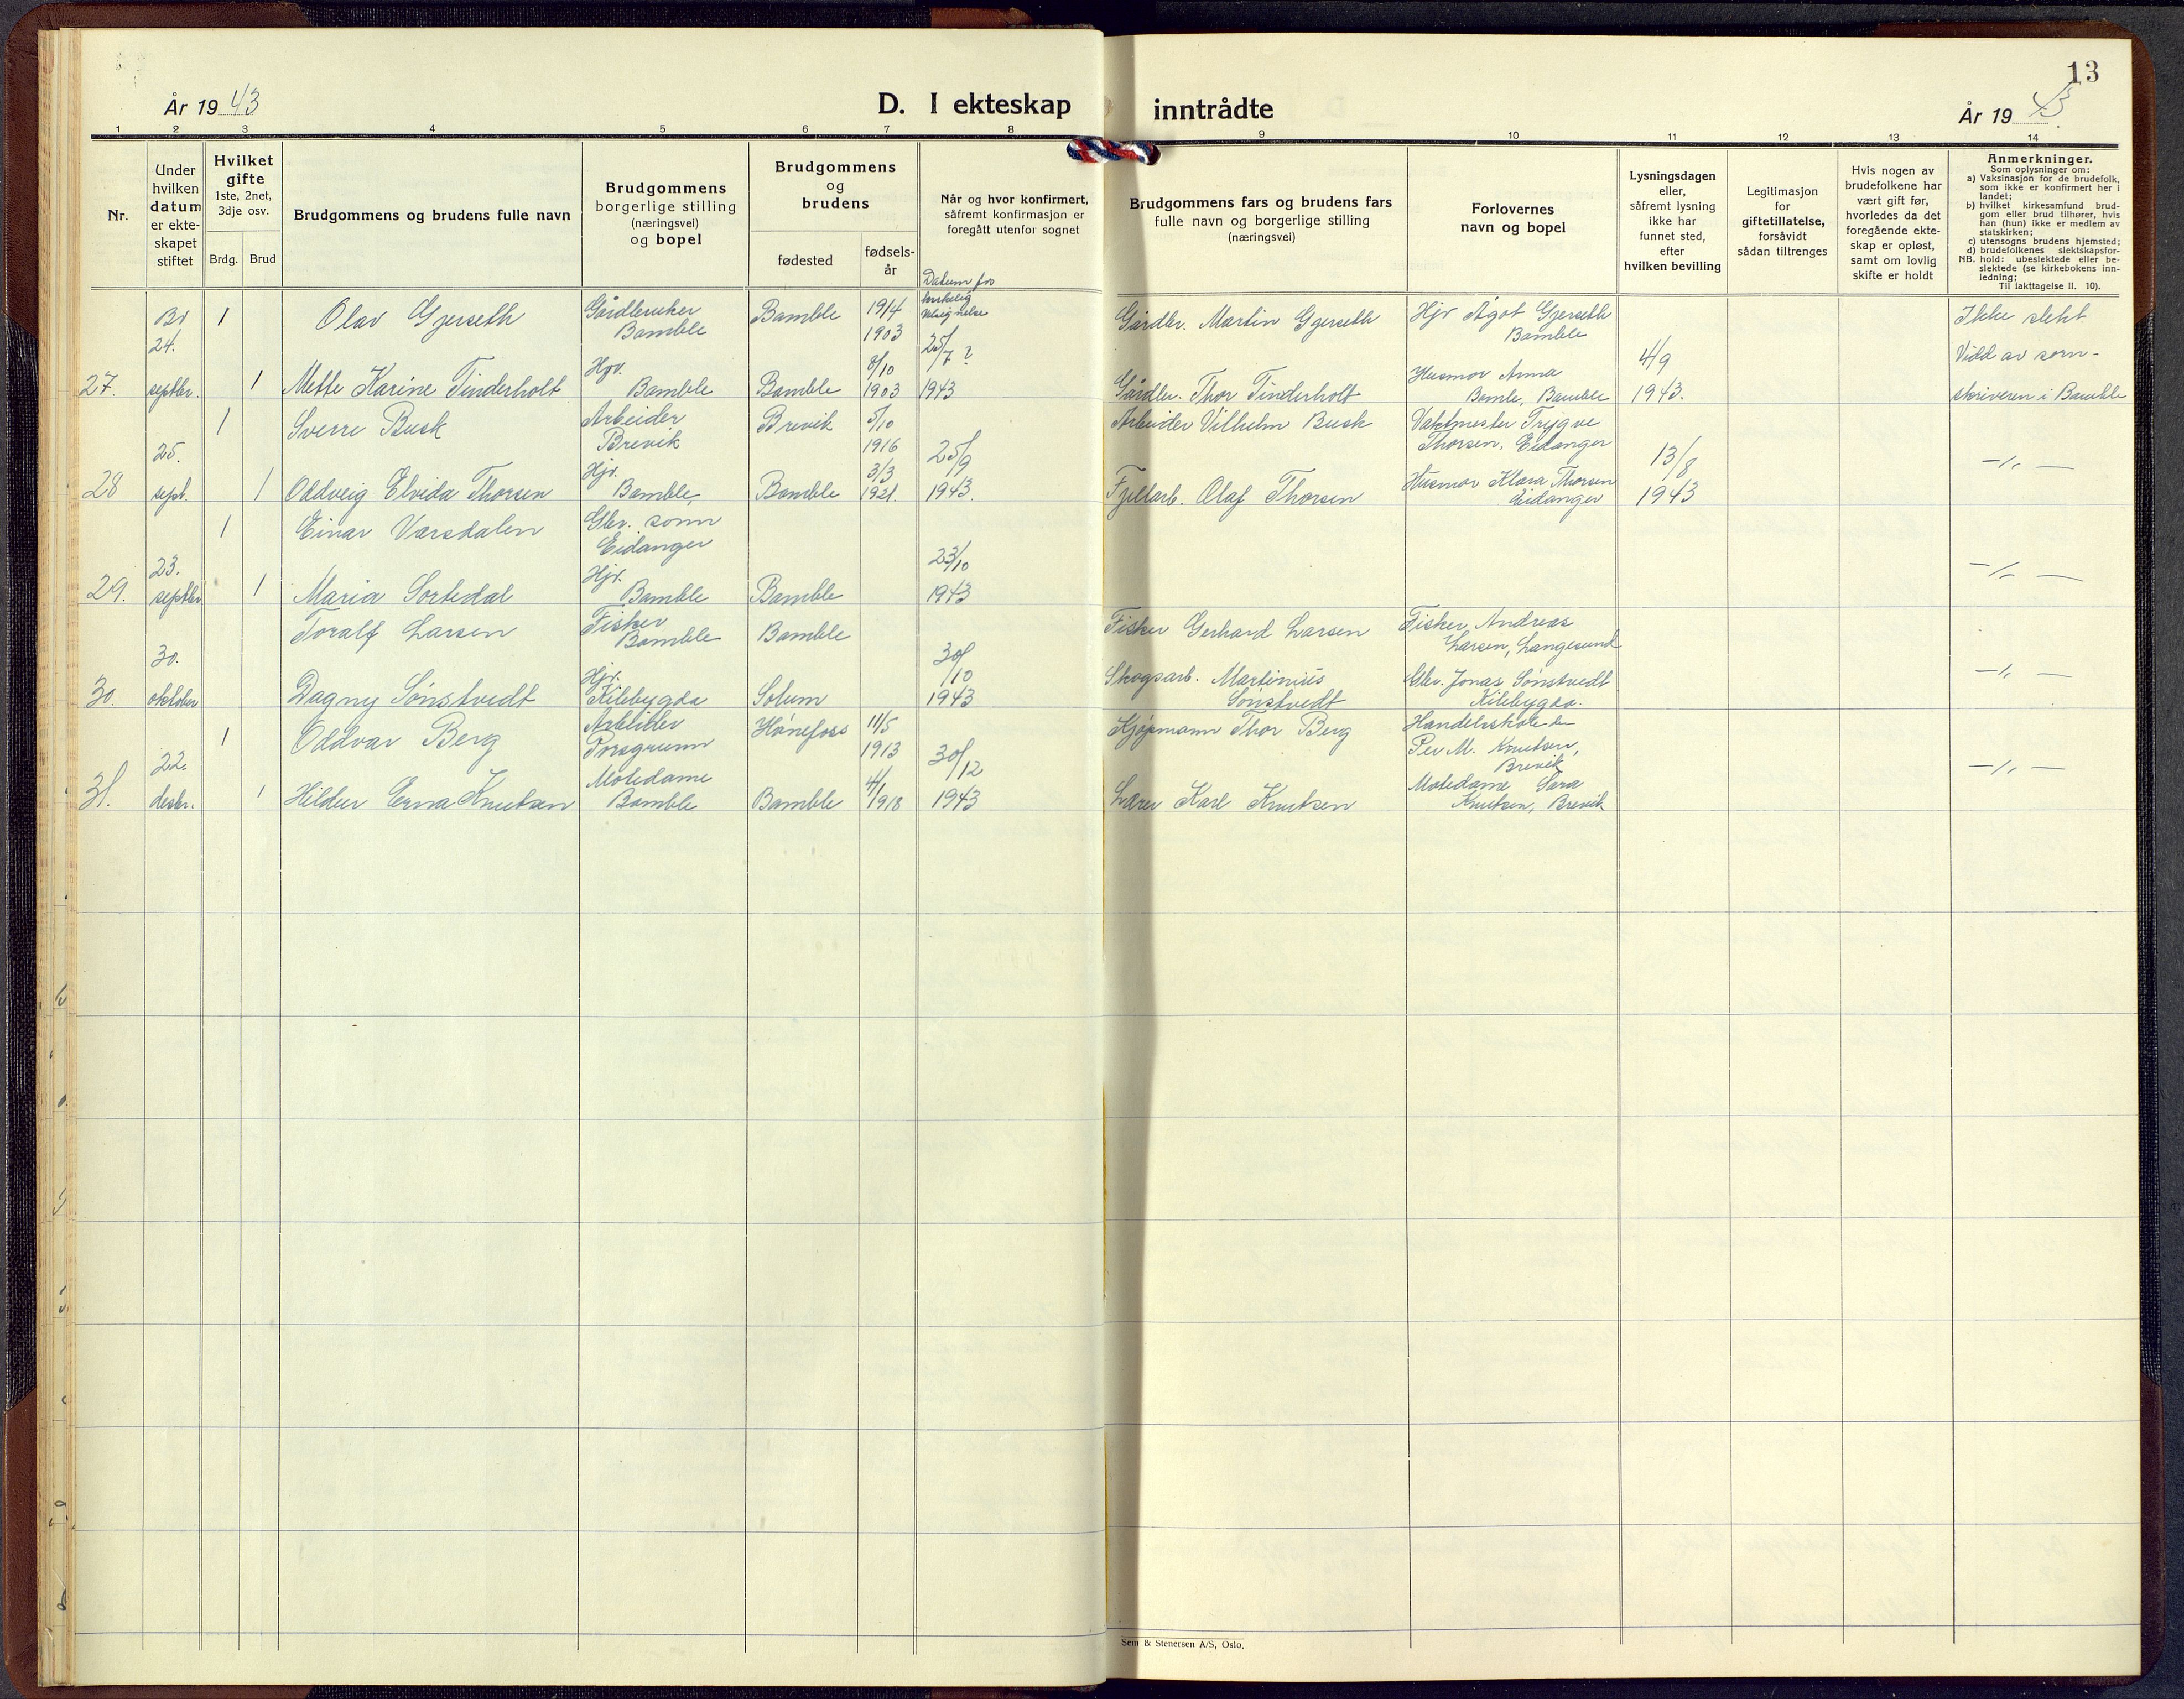 13
År 1943
D. I ekteskap inntrådte
År 1943
1 2 3 4 5 6 7 8 9 10 11 12 13 14
Nr.
Under
hvilken
datum
er ekte-
skapet
stiftet
Hvilket
gifte
1ste, 2net,
3dje osv.
Brdg. Brud
Brudgommens og brudens fulle navn
Brudgommens
borgerlige stilling
(næringsvei)
og bopel
Brudgommens
og
brudens
fødested
fødsels-
år
Når og hvor konfirmert,
såfremt konfirmasjon er
foregått utenfor sognet
Datum for
kirkelig
velsignelse
Brudgommens fars og brudens fars
fulle navn og borgerlige stilling
(næringsvei)
Forlovernes
navn og bopel
Lysningsdagen
eller,
såfremt lysning
ikke har
funnet sted,
efter
hvilken bevilling
Legitimasjon
for
giftetillatelse,
forsåvidt
sådan tiltrenges
Hvis nogen av
brudefolkene har
vært gift før,
hvorledes da det
foregående ekte-
skap er opløst,
samt om lovlig
skifte er holdt
Anmerkninger.
Som oplysninger om:
a) Vaksinasjon for de brudefolk,
som ikke er konfirmert her i
landet;
b) hvilket kirkesamfund brud-
gom eller brud tilhører, hvis
han (hun) ikke er medlem av
statskirken;
c) utensogns brudens hjemsted;
d) brudefolkenes slektskapsfor-
NB. hold: ubeslektede eller be-
slektede (se kirkebokens inn-
ledning;
Til iakttagelse II. 10).
27. 24. septbr.
1 Olav Gjerseth Gårdbruker Bamble Bamble 19/4 1903
Gårdbr. Martin Gjerseth
Hjv Ågot Gjerseth
Bamble
Ikke slekt
1 Mette Karine Tinderholt Hjv. Bamble Bamble 8/10 1903
25/7 ? 1943
Gårdbr. Thor Tinderholt
Husmor Anna
Bamble
4/9 1943.
Vidd av soren-
skriveren i Bamble
28 25. sept.
1 Sverre Busk Arbeider Brevik Brevik 5/10 1916
Arbeider Vilhelm Busk
Vaktmester Trygve
Thorsen, Eidanger
1 Oddveig Elvida Thorsen Hjv. Bamble, Bamble 3/3 1921.
25/9 1943.
Fjellarb. Olaf Thorsen
Husmor Klara Thorsen
Eidanger
13/8 1943
-"-
29. 23. septbr
1 Einar Versdalen Gbr. sønn Eidanger
1 Maria Sortedal Hjv. Bamble Bamble
23/10 1943
-"-
30. 30. oktober
Toralf Larsen Fisker Bamble Bamble
Fisker Gerhard Larsen
Fisker Andreas
Larsen, Langesund
Dagny Sønstvedt Hjv. Kilebygda Solum
30/10 1943
Skogsarb. Martinius
Sønstvedt
Gbr. Jonas Sønstvedt
Kilebygda.
-"-
31. 22. desbr.
1 Oddvar Berg Arbeider Porsgrunn Hønefoss 11/5 1913
Kjøpmann Thor Berg
Per M. Knutsen,
Brevik
1 Hildur Erna Knutsen Motedame Bamble Bamble 4/1 1918
30/12 1943
Lærer Karl Knutsen
Motedame Sara
Knutsen, Brevik
-"-
Sem & Stenersen A/S, Oslo.